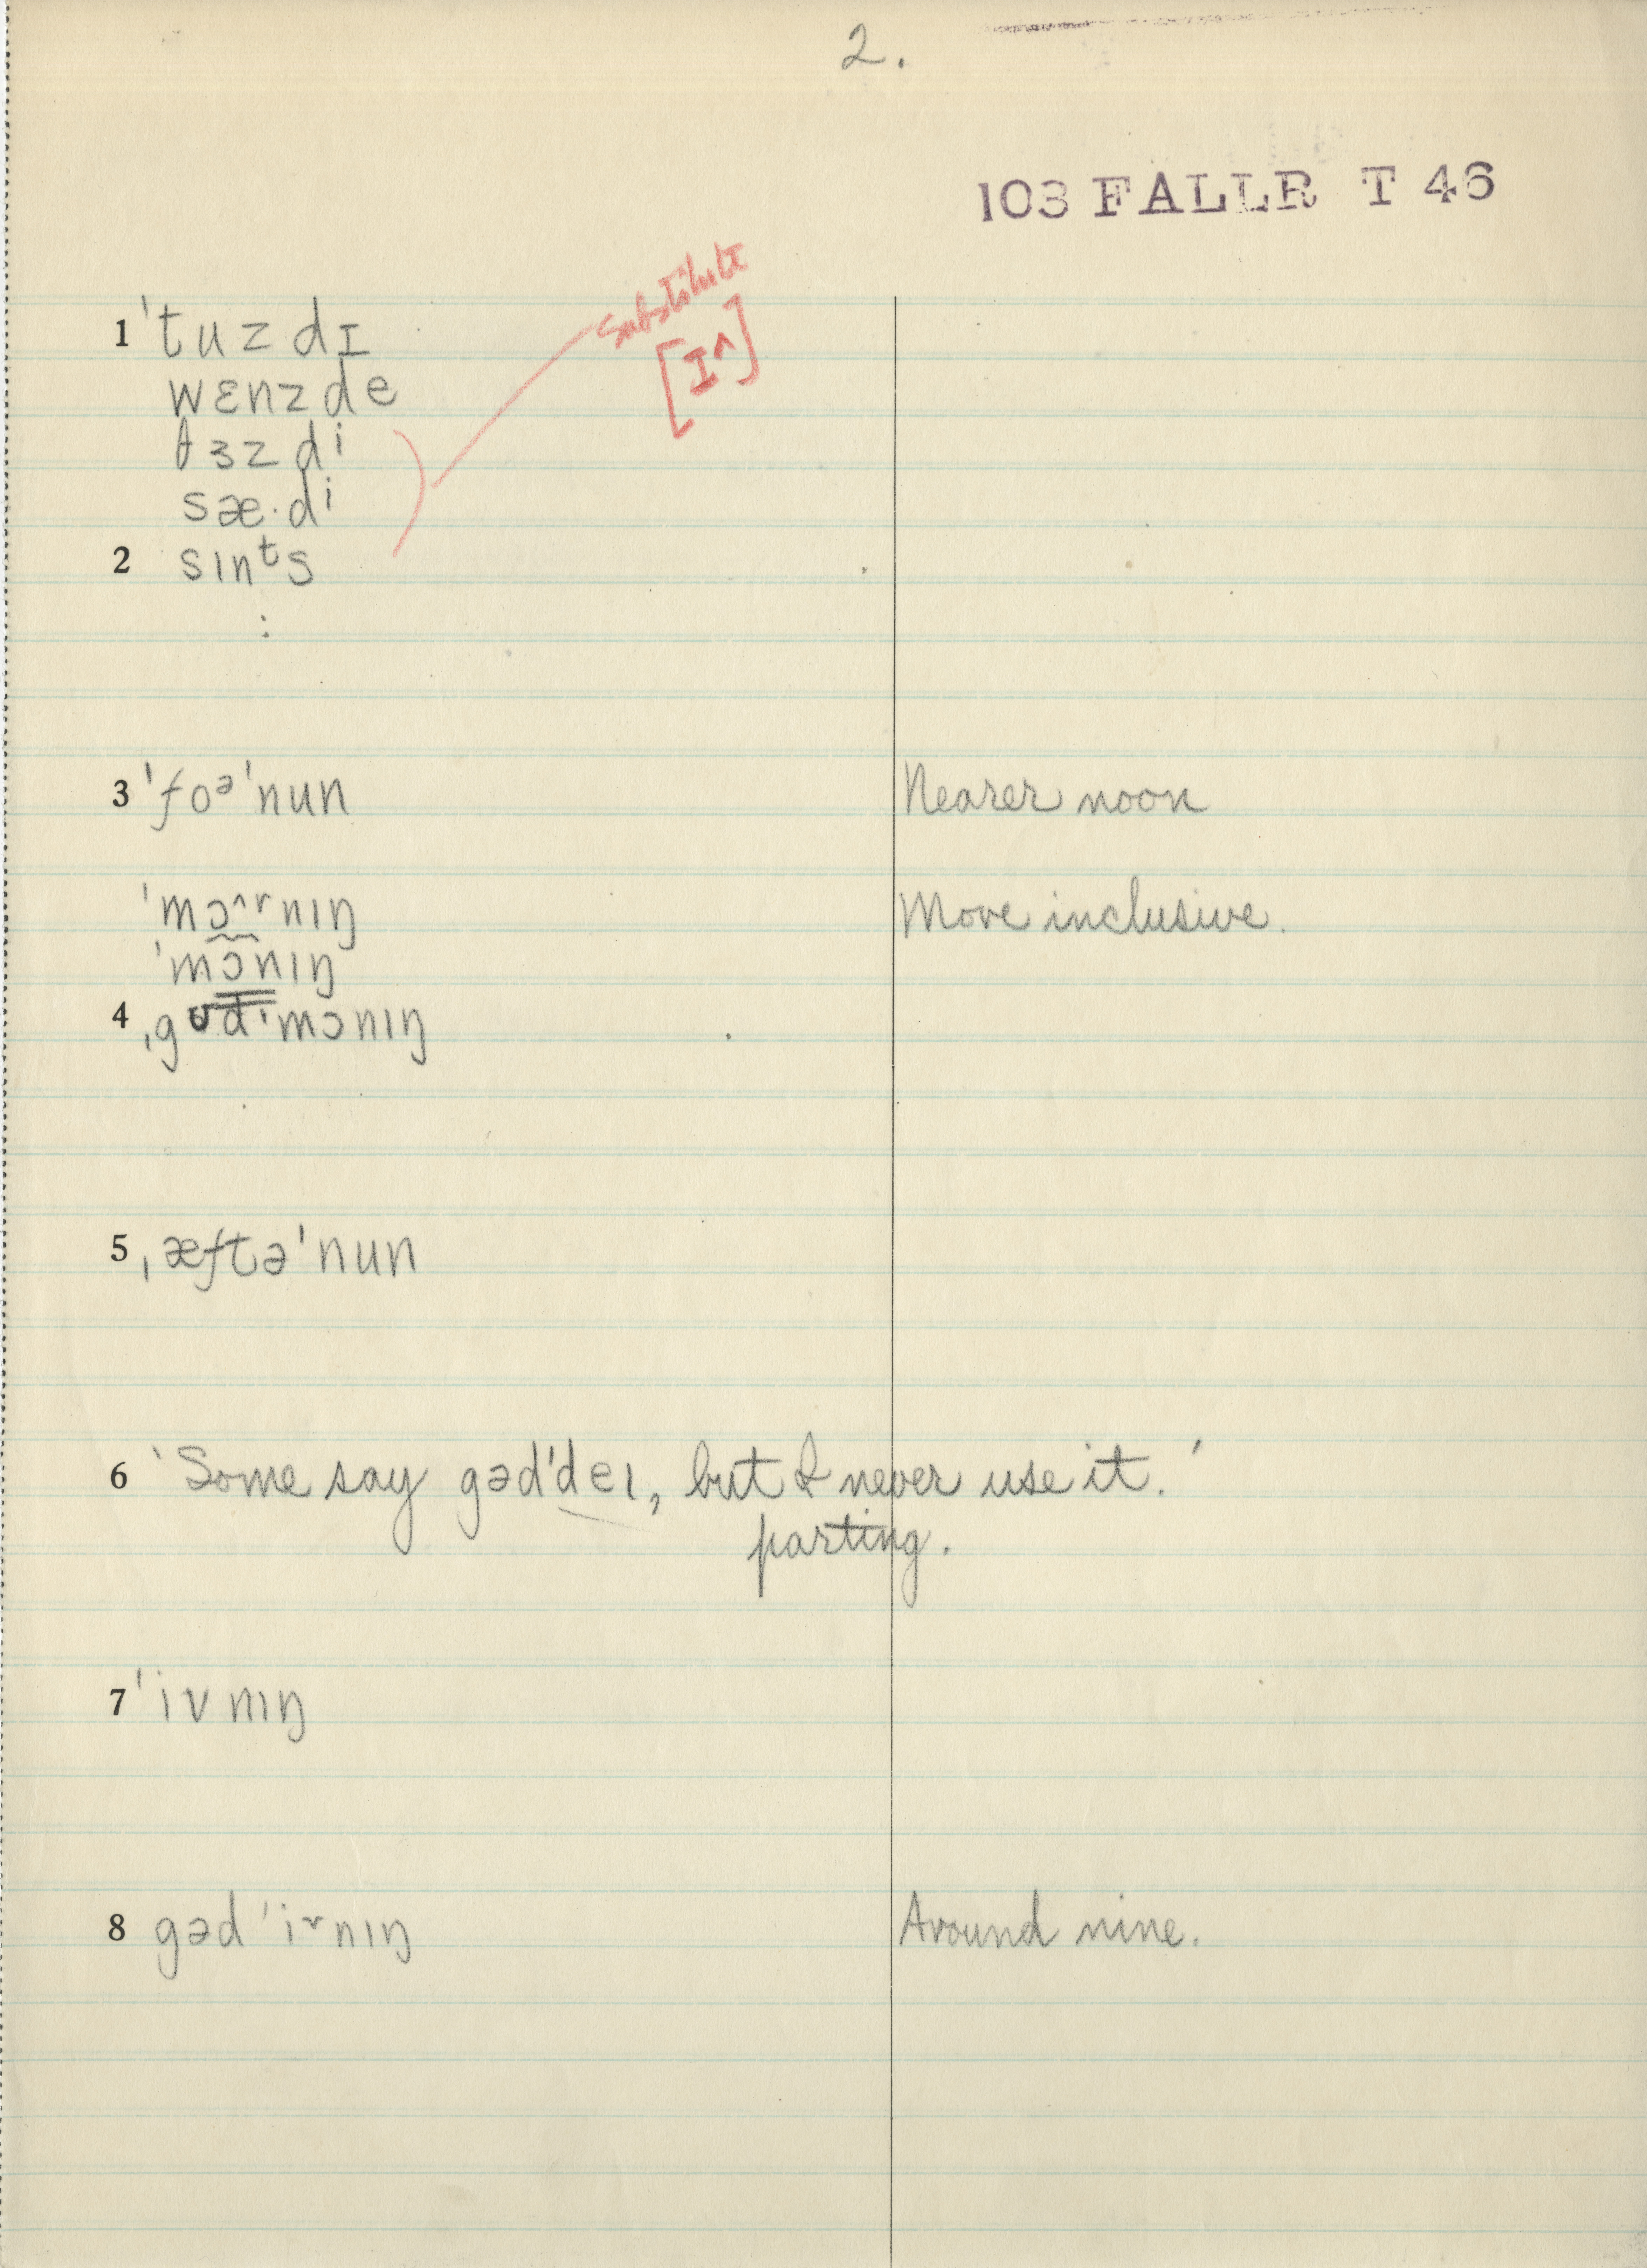 2.
103 FALLR T 46
substitute
[ɪ^]
1 ˈtuzdɪ
wɛnzde
θɜzdi
sæ·di
2 sɪnᵗs
:
3 ˈfoᵊˈnun Nearer noon
ˈmɔ^ʳnɪŋ More inclusive.
ˈmɔnɪŋ
4 ˌgʊdˈmɔnɪŋ
5 ˌæftəˈnun
6 'Some say gədˈdeɪ, but I never use it.'
parting.
7 ˈivnɪŋ
8 gədˈiᵛnɪŋ Around nine.